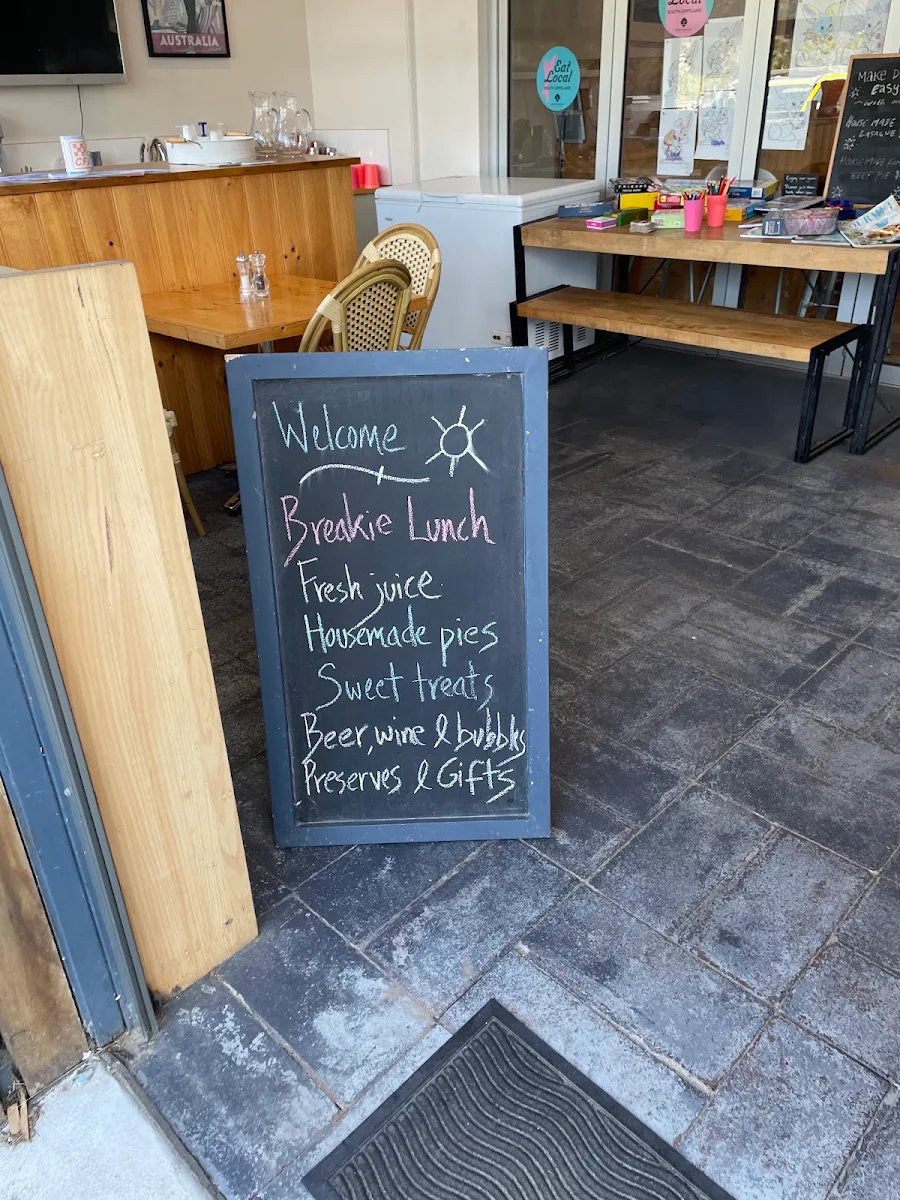 AUSTRALIA
Eat
Local
SOUTH GIPPSLAND
Local
SOUTH GIPPSLAND
MAKE D
EASY
HOUSE MADE
LASAGNE
HOUSE MADE
BEEF PIE
Welcome
Breakie Lunch
Fresh juice
Housemade pies
Sweet treats
Beer, wine & bubbly
Preserves & Gifts